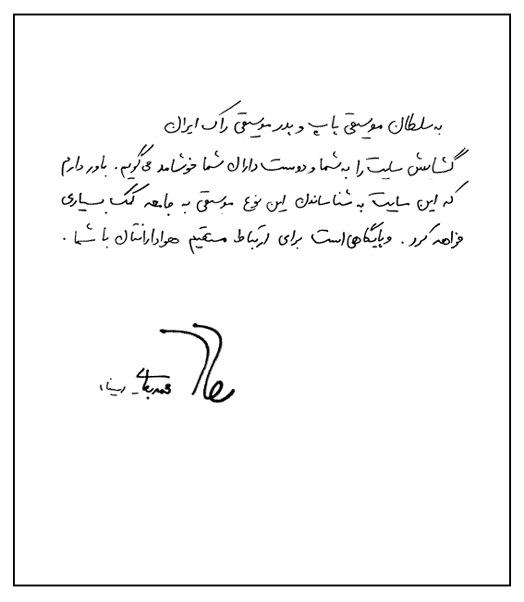 به سلطان موسیقی پاپ و پدر موسیقی راک ایران
گشایش سایت را به شما و دوست داران شما خوشامد می گویم. باور دارم
که این سایت به شناساندن این نوع موسیقی به جامعه کمک بسیاری
خواهد کرد. و پایگاهی است برای ارتباط مستقیم هوادارانتان با شما.